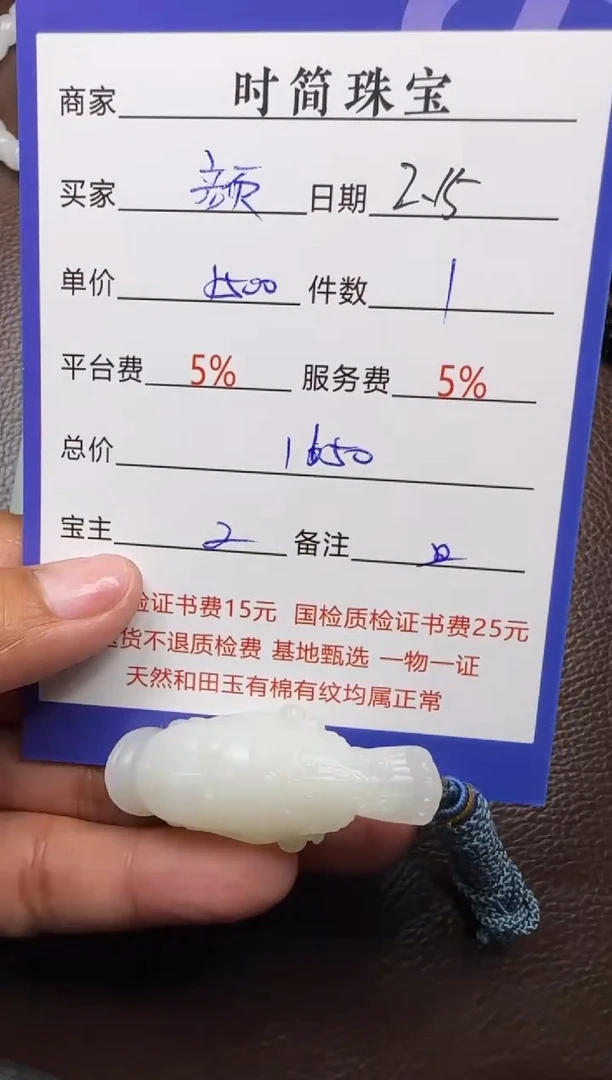 商家 时简珠宝
买家 颜 日期 2.15
单价 1500 件数 1
平台费 5% 服务费 5%
总价 1650
宝主 2 备注
检证书费15元 国检质检证书费25元
退货不退质检费 基地甄选 一物一证
天然和田玉有棉有纹均属正常